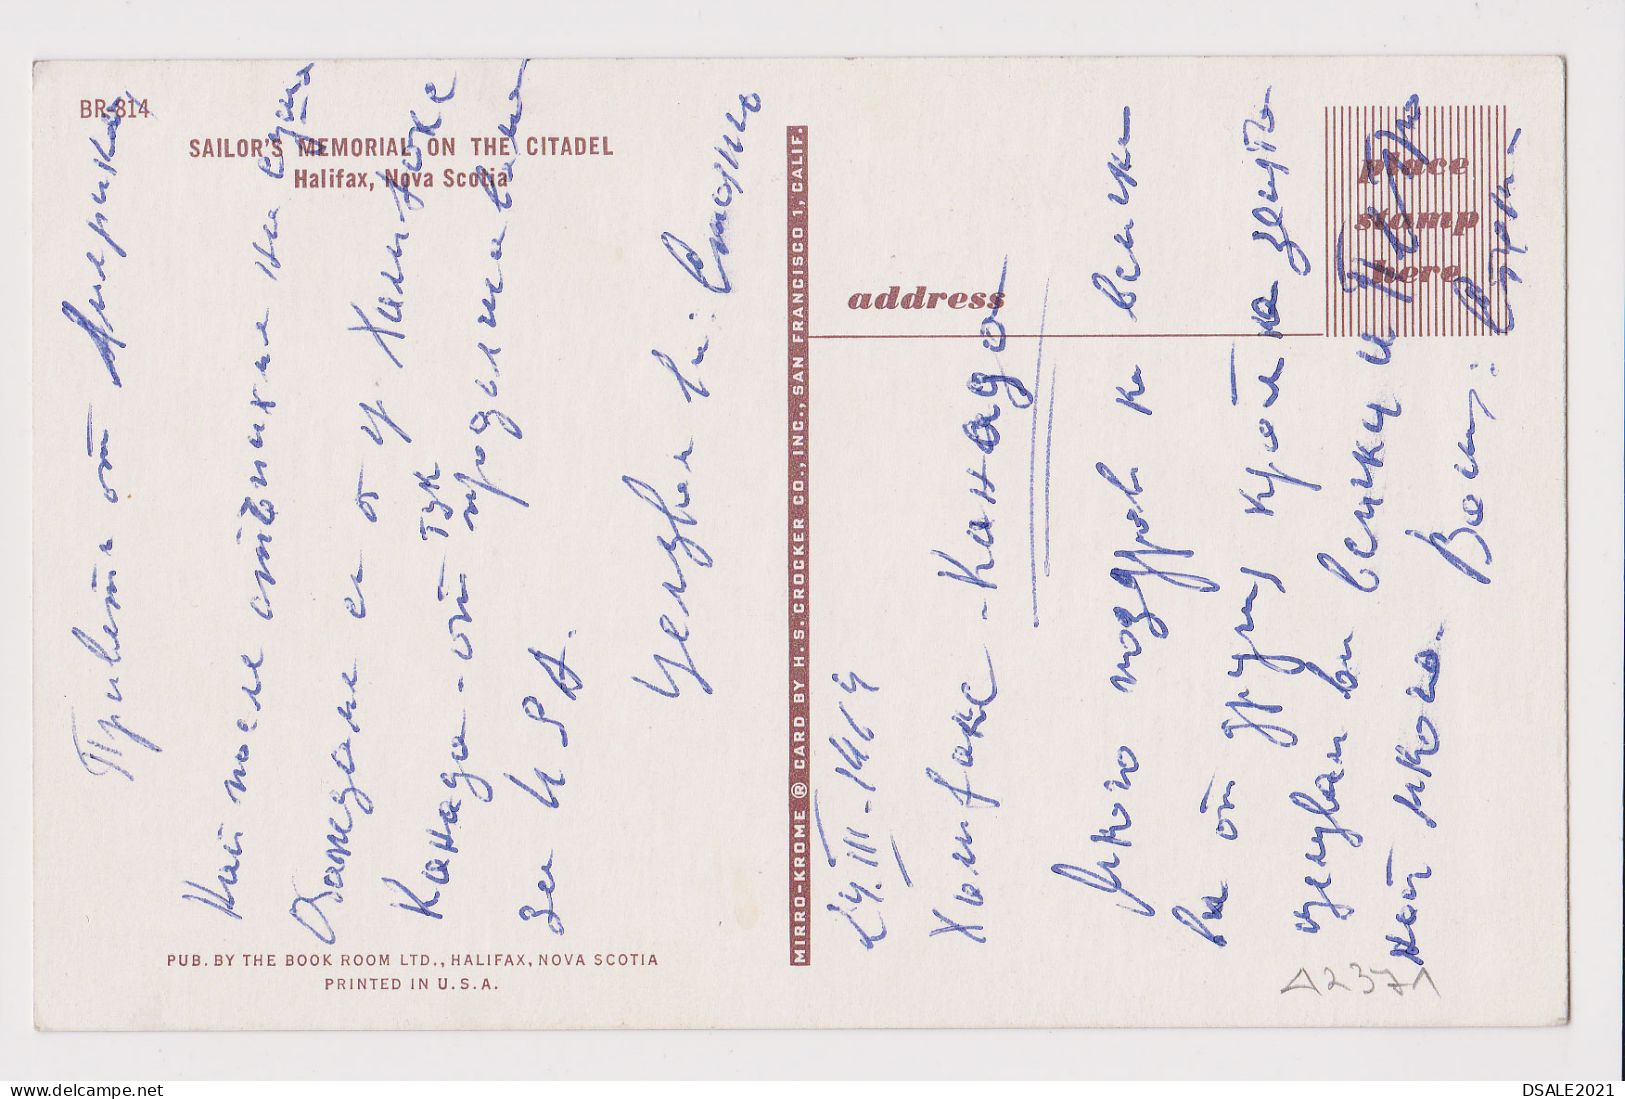 BR-814
SAILOR'S MEMORIAL ON THE CITADEL
Halifax, Nova Scotia
Привети от Америка
Най после стъпихме на суша
се в г. Халифакс
Канада - от тук
продължаваме
за
Целувам ви: Стойчо
PUB. BY THE BOOK ROOM LTD., HALIFAX, NOVA SCOTIA
PRINTED IN U.S.A.
MIRRO-KROME ® CARD BY H. S. CROCKER CO., INC., SAN FRANCISCO 1, CALIF.
address
place
stamp
here
24.III-1969
Халифакс - Канада
Много поздрави на всички
от другия край на земята
целувам ви всички и Петя
най много. Ваш:
A2371
DSALE2021